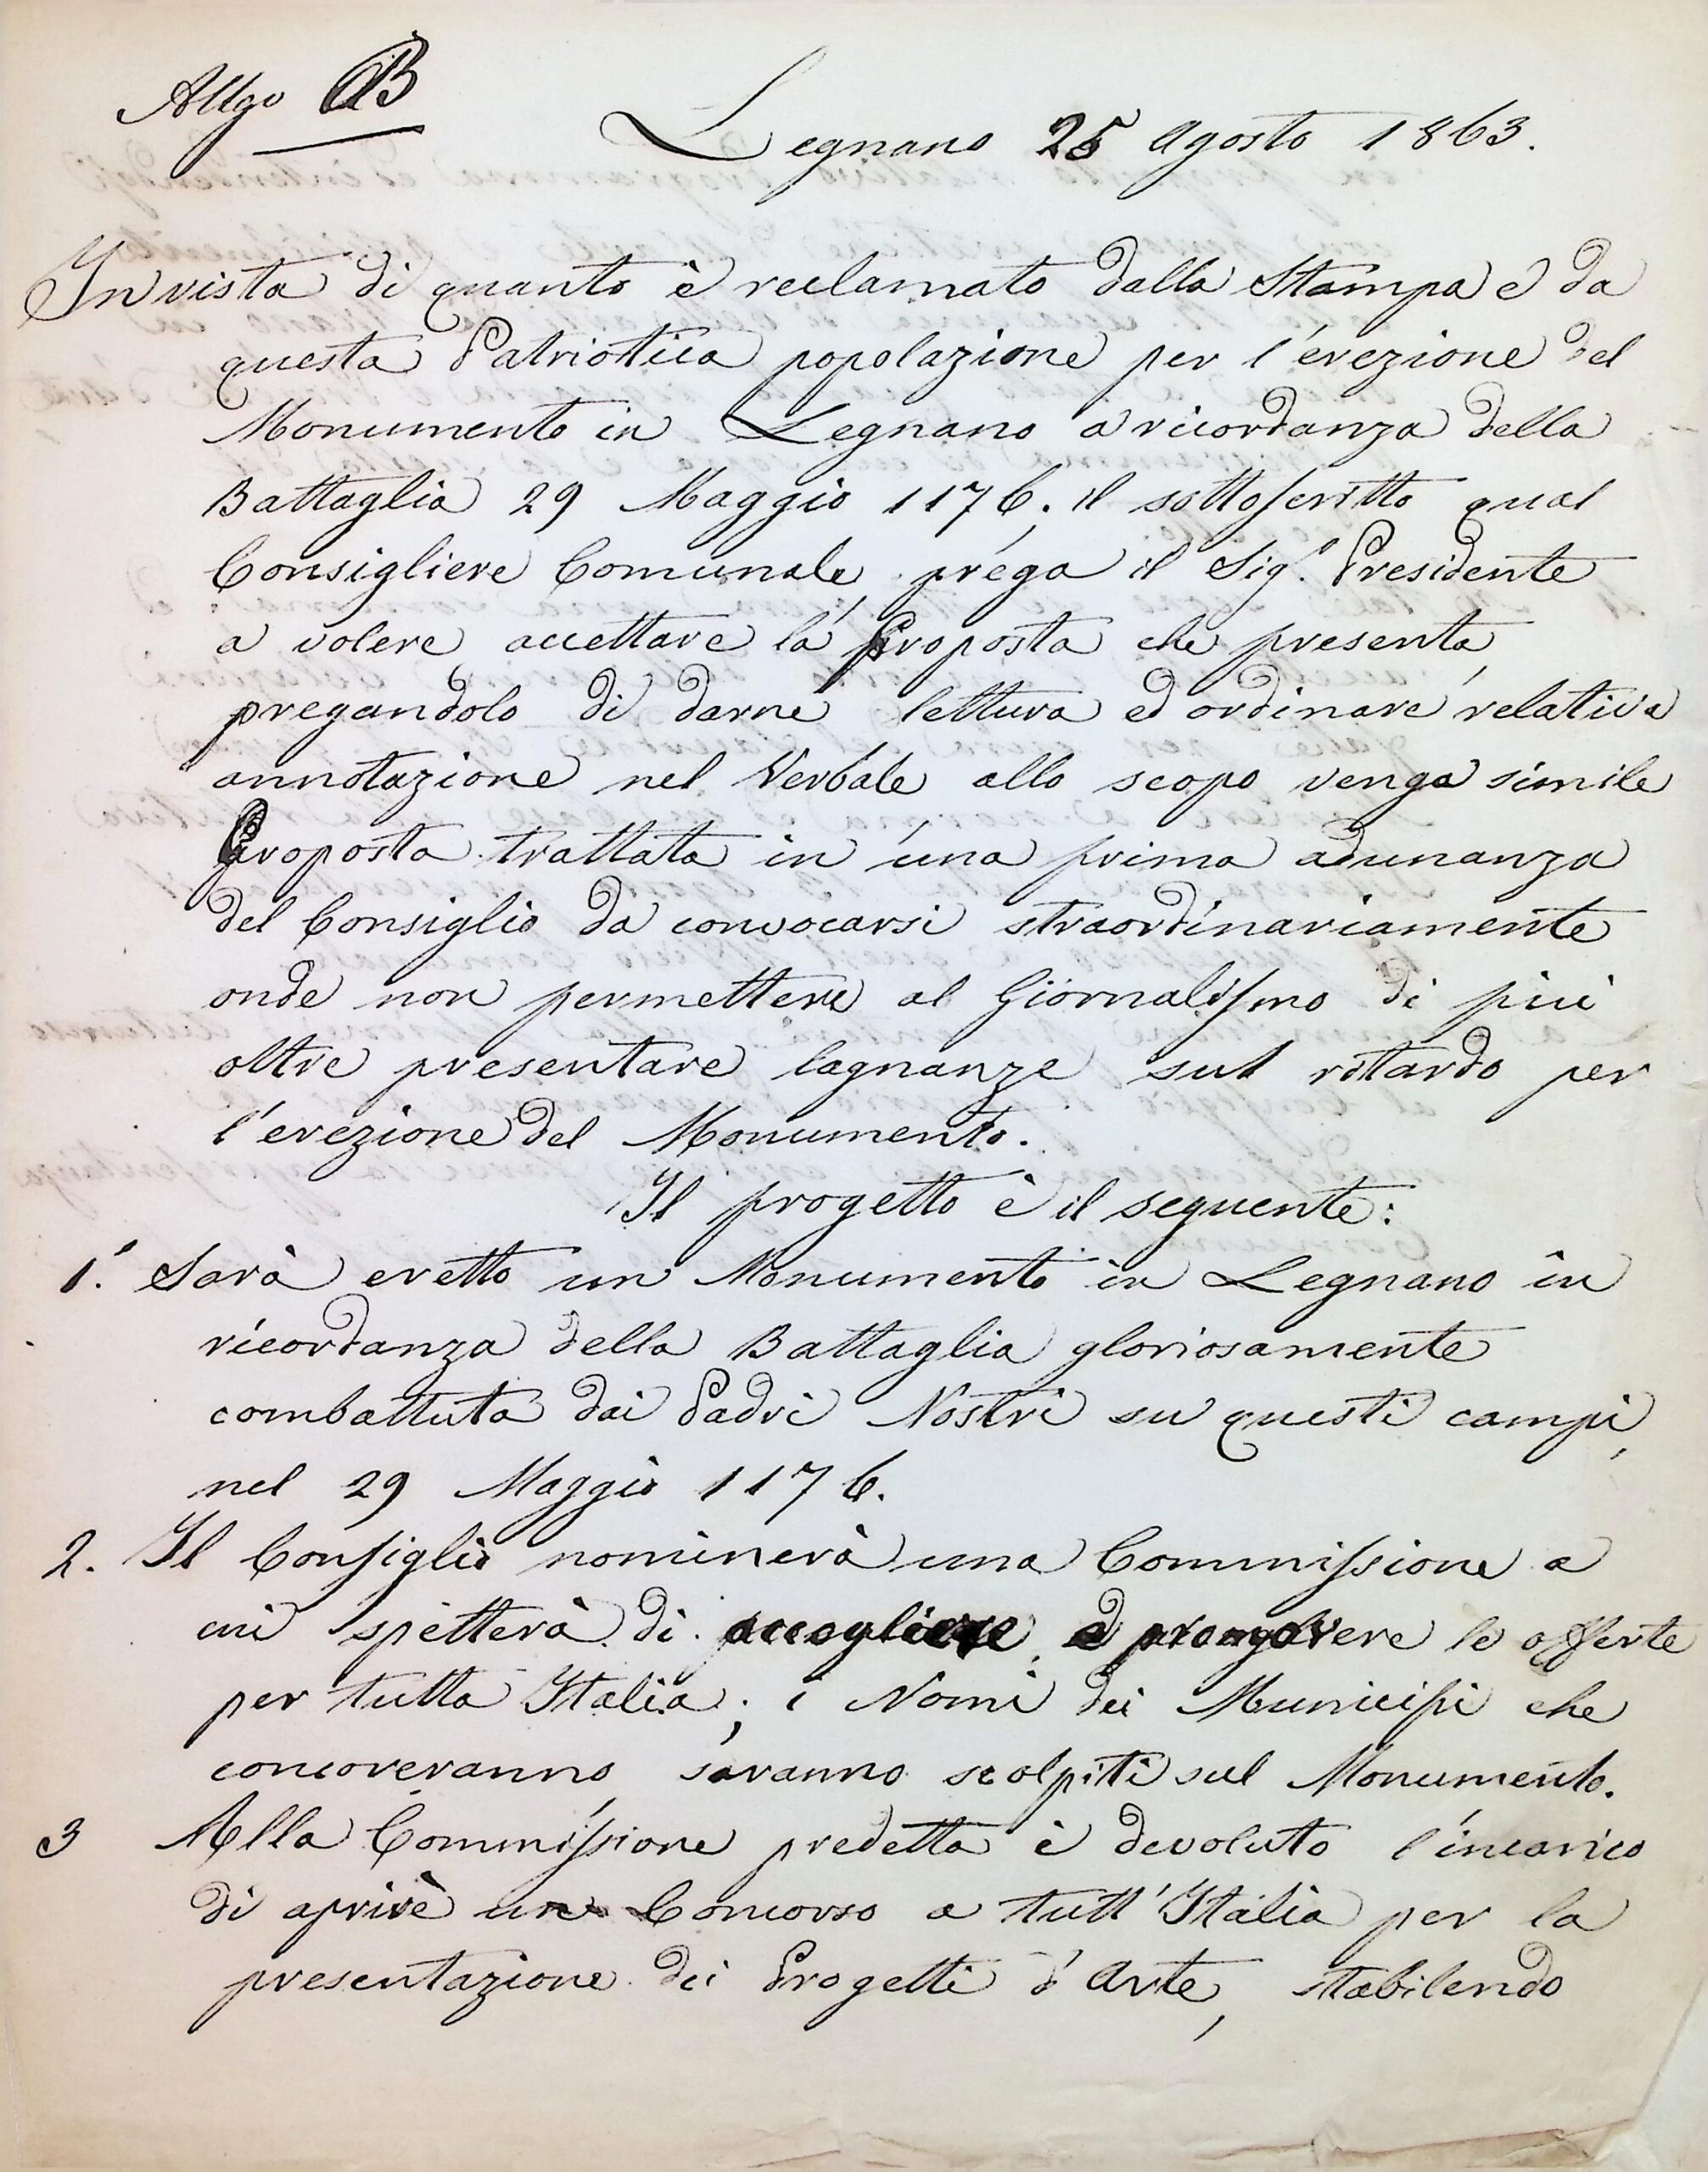 Allgo B
Legnano 25 Agosto 1863.
In vista di quanto è reclamato dalla Stampa e da
questa Patriottica popolazione per l'erezione del
Monumento in Legnano a ricordanza della
Battaglia 29 Maggio 1176; il sottoscritto qual
Consigliere Comunale, prega il Sigr. Presidente
a volere accettare la Proposta che presenta,
pregandolo di darne lettura ed ordinare relativa
annotazione nel Verbale allo scopo venga simile
Proposta trattata in una prima adunanza
del Consiglio da convocarsi straordinariamente
onde non permettere al Giornalismo di più
oltre presentare lagnanze sul ritardo per
l'erezione del Monumento.
Il progetto è il seguente:
1.° Sarà eretto un Monumento in Legnano in
ricordanza della Battaglia gloriosamente
combattuta dai Padri Nostri su questi campi,
nel 29 Maggio 1176.
2. Il Consiglio nominerà una Commissione a
cui spetterà di accogliere, e promovere le offerte
per tutta Italia; i Nomi dei Municipi che
concoreranno, saranno scolpiti sul Monumento.
3 Alla Commissione predetta è devoluto l'incarico
di aprire un Concorso a tutt'Italia per la
presentazione dei Progetti d'Arte, stabilendo